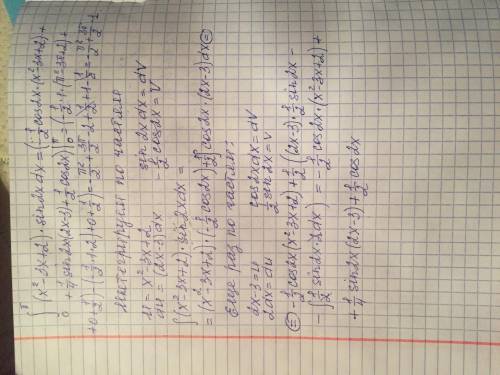 ∫₀^π (x²-3x+2)·sin2x dx = (-1/2 cos2x·(x²-3x+2)+
+1/4 sin2x(2x-3)+1/4 cos2x)|₀^π = (-1/2·1·(π²-3π+2)+
+0+1/4)-(-1/2·1·2)+0+1/4)= -π²/2+3π/2-1+1/4+1-1/4=-π²/2+3π/2
Интегрируем по частям
u = x²-3x+2 sin2xdx=dV
du = (2x-3)dx -1/2 cos2x=V
∫(x²-3x+2)·sin2xdx =
=(x²-3x+2)·(-1/2 cos2x)+1/2∫cos2x·(2x-3)dx ⊜
Еще раз по частям:
2x-3=u cos2xdx=dV
2dx=du 1/2 sin2x=V
⊜ -1/2 cos2x(x²-3x+2)+1/2((2x-3)·1/2 sin2x-
-∫1/2 sin2x·2dx) = -1/2 cos2x·(x²-3x+2)+
+1/4 sin2x(2x-3)+1/4 cos2x